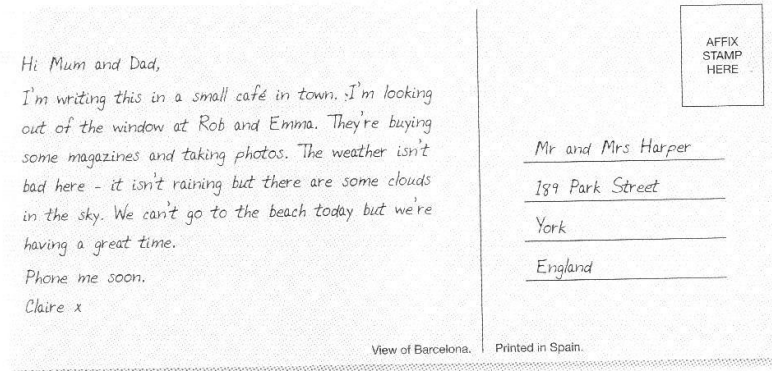 Hi Mum and Dad,
I'm writing this in a small café in town. I'm looking
out of the window at Rob and Emma. They're buying
some magazines and taking photos. The weather isn't
bad here - it isn't raining but there are some clouds
in the sky. We can't go to the beach today but we're
having a great time.
Phone me soon.
Claire x
View of Barcelona.
AFFIX
STAMP
HERE
Mr and Mrs Harper
189 Park Street
York
England
Printed in Spain.